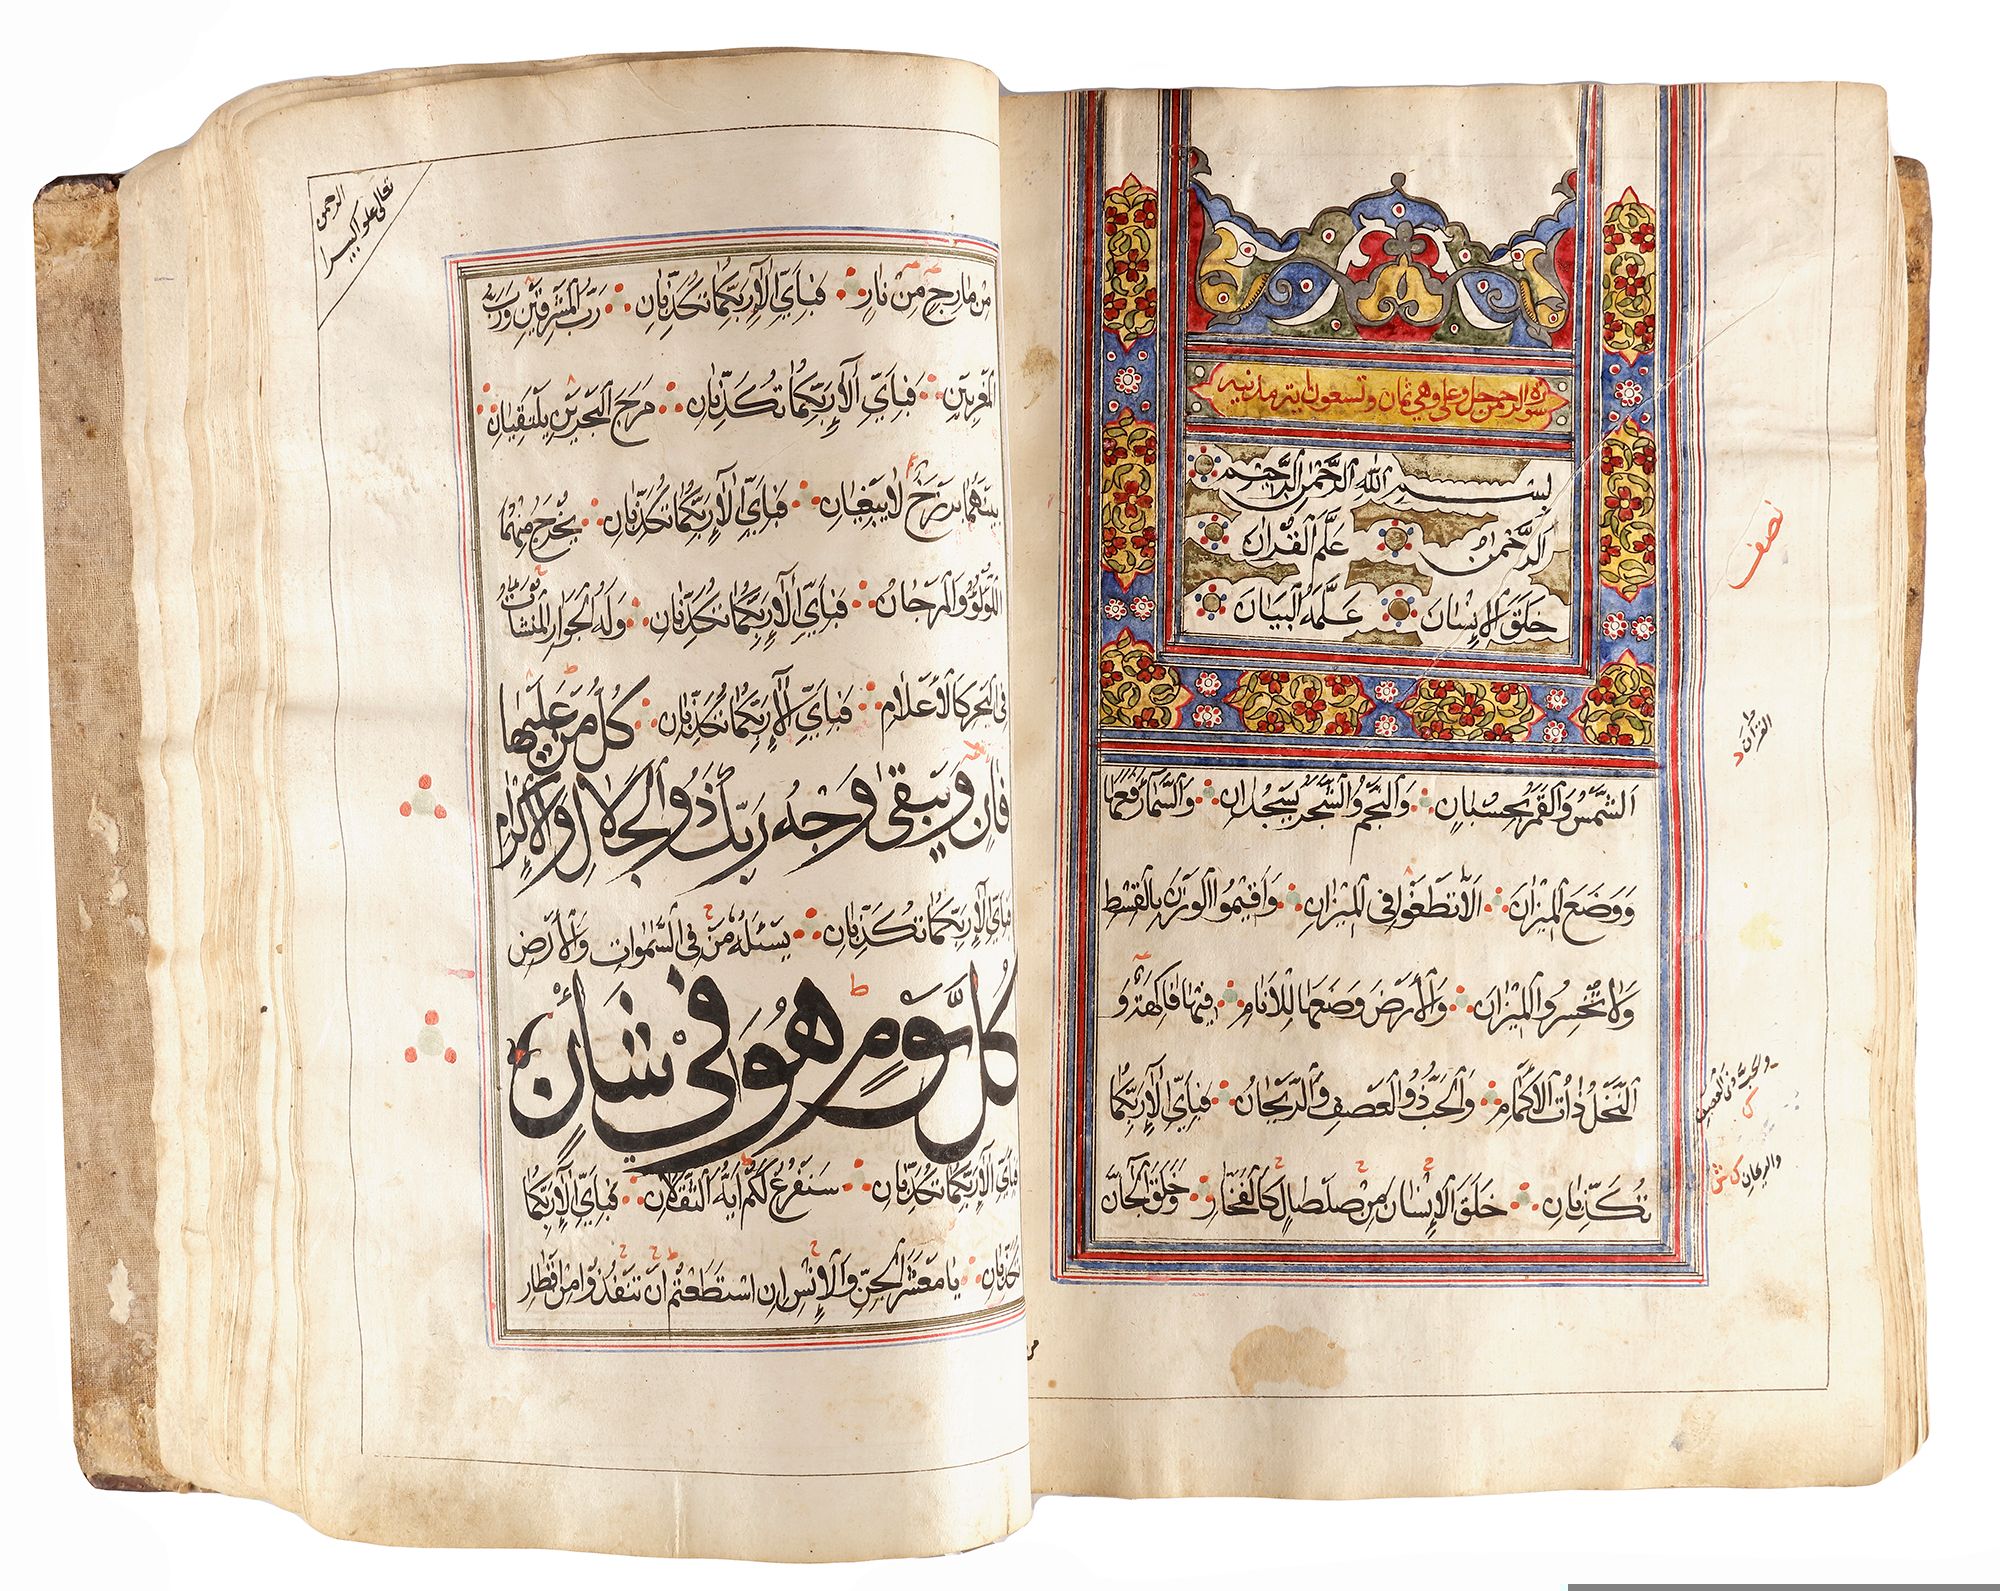 سورة الرحمن جل وعلى وهي ثمان وتسعون اية مدنيه
بِسْمِ اللهِ الرَّحْمٰنِ الرَّحِيمِ
اَلرَّحْمٰنُ عَلَّمَ الْقُرْاٰنَ
خَلَقَ الْاِنْسَانَ عَلَّمَهُ الْبَيَانَ
اَلشَّمْسُ وَالْقَمَرُ بِحُسْبَانٍ وَالنَّجْمُ وَالشَّجَرُ يَسْجُدَانِ وَالسَّمَاءَ رَفَعَهَا
وَوَضَعَ الْمِيزَانَ اَلَّا تَطْغَوْا فِي الْمِيزَانِ وَاَقِيمُوا الْوَزْنَ بِالْقِسْطِ
وَلَا تُخْسِرُوا الْمِيزَانَ وَالْاَرْضَ وَضَعَهَا لِلْاَنَامِ فِيهَا فَاكِهَةٌ وَ
النَّخْلُ ذَاتُ الْاَكْمَامِ وَالْحَبُّ ذُو الْعَصْفِ وَالرَّيْحَانُ فَبِاَيِّ اٰلَاءِ رَبِّكُمَا
تُكَذِّبَانِ خَلَقَ الْاِنْسَانَ مِنْ صَلْصَالٍ كَالْفَخَّارِ وَخَلَقَ الْجَانَّ
نصف
والريحان
الرحمن
تعالى علوا كبيرا
مِنْ مَارِجٍ مِنْ نَارٍ فَبِاَيِّ اٰلَاءِ رَبِّكُمَا تُكَذِّبَانِ رَبُّ الْمَشْرِقَيْنِ وَرَبُّ
الْمَغْرِبَيْنِ فَبِاَيِّ اٰلَاءِ رَبِّكُمَا تُكَذِّبَانِ مَرَجَ الْبَحْرَيْنِ يَلْتَقِيَانِ
بَيْنَهُمَا بَرْزَخٌ لَا يَبْغِيَانِ فَبِاَيِّ اٰلَاءِ رَبِّكُمَا تُكَذِّبَانِ يَخْرُجُ مِنْهُمَا
اللُّؤْلُؤُ وَالْمَرْجَانُ فَبِاَيِّ اٰلَاءِ رَبِّكُمَا تُكَذِّبَانِ وَلَهُ الْجَوَارِ الْمُنْشَاٰتُ
فِي الْبَحْرِ كَالْاَعْلَامِ فَبِاَيِّ اٰلَاءِ رَبِّكُمَا تُكَذِّبَانِ كُلُّ مَنْ عَلَيْهَا
فَانٍ وَيَبْقٰى وَجْهُ رَبِّكَ ذُو الْجَلَالِ وَالْاِكْرَامِ
فَبِاَيِّ اٰلَاءِ رَبِّكُمَا تُكَذِّبَانِ يَسْئَلُهُ مَنْ فِي السَّمٰوَاتِ وَالْاَرْضِ
كُلَّ يَوْمٍ هُوَ فِي شَاْنٍ
فَبِاَيِّ اٰلَاءِ رَبِّكُمَا تُكَذِّبَانِ سَنَفْرُغُ لَكُمْ اَيُّهَ الثَّقَلَانِ فَبِاَيِّ اٰلَاءِ رَبِّكُمَا
تُكَذِّبَانِ يَا مَعْشَرَ الْجِنِّ وَالْاِنْسِ اِنِ اسْتَطَعْتُمْ اَنْ تَنْفُذُوا مِنْ اَقْطَارِ